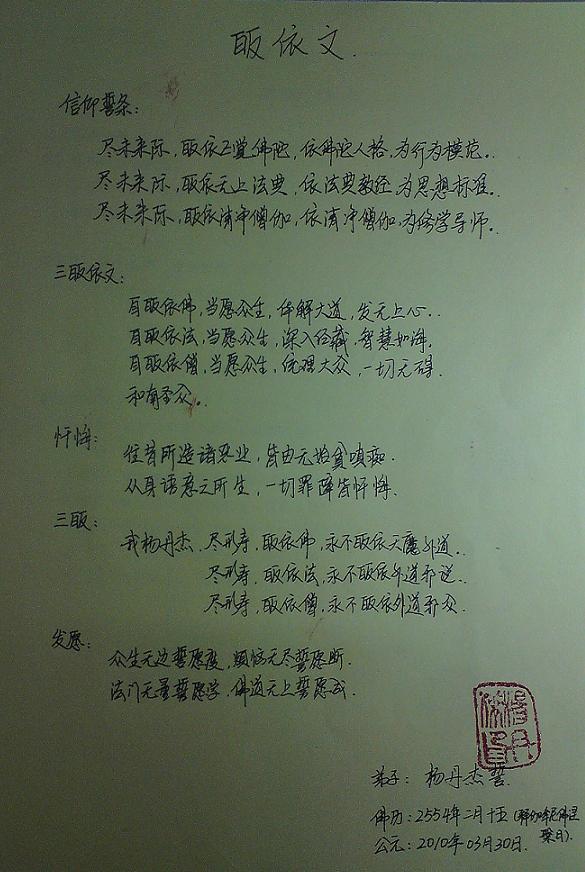 皈依文.
信仰誓条:
尽未来际,皈依正觉佛陀,依佛陀人格,为行为模范.
尽未来际,皈依无上法典,依法典教经,为思想标准.
尽未来际,皈依清净僧伽,依清净僧伽,为修学导师.
三皈依文:
自皈依佛,当愿众生,体解大道,发无上心.
自皈依法,当愿众生,深入经藏,智慧如海.
自皈依僧,当愿众生,统理大众,一切无碍.
和南圣众.
忏悔:
往昔所造诸恶业,皆由无始贪嗔痴.
从身语意之所生,一切罪障皆忏悔.
三皈:
我杨丹杰,尽形寿,皈依佛,永不皈依天魔外道.
尽形寿,皈依法,永不皈依外道邪说.
尽形寿,皈依僧,永不皈依外道邪众.
发愿:
众生无边誓愿度,烦恼无尽誓愿断.
法门无量誓愿学,佛道无上誓愿成.
弟子:杨丹杰 誓.
佛历:2554年二月十五(释伽牟尼佛涅槃日).
公元:2010年03月30日.